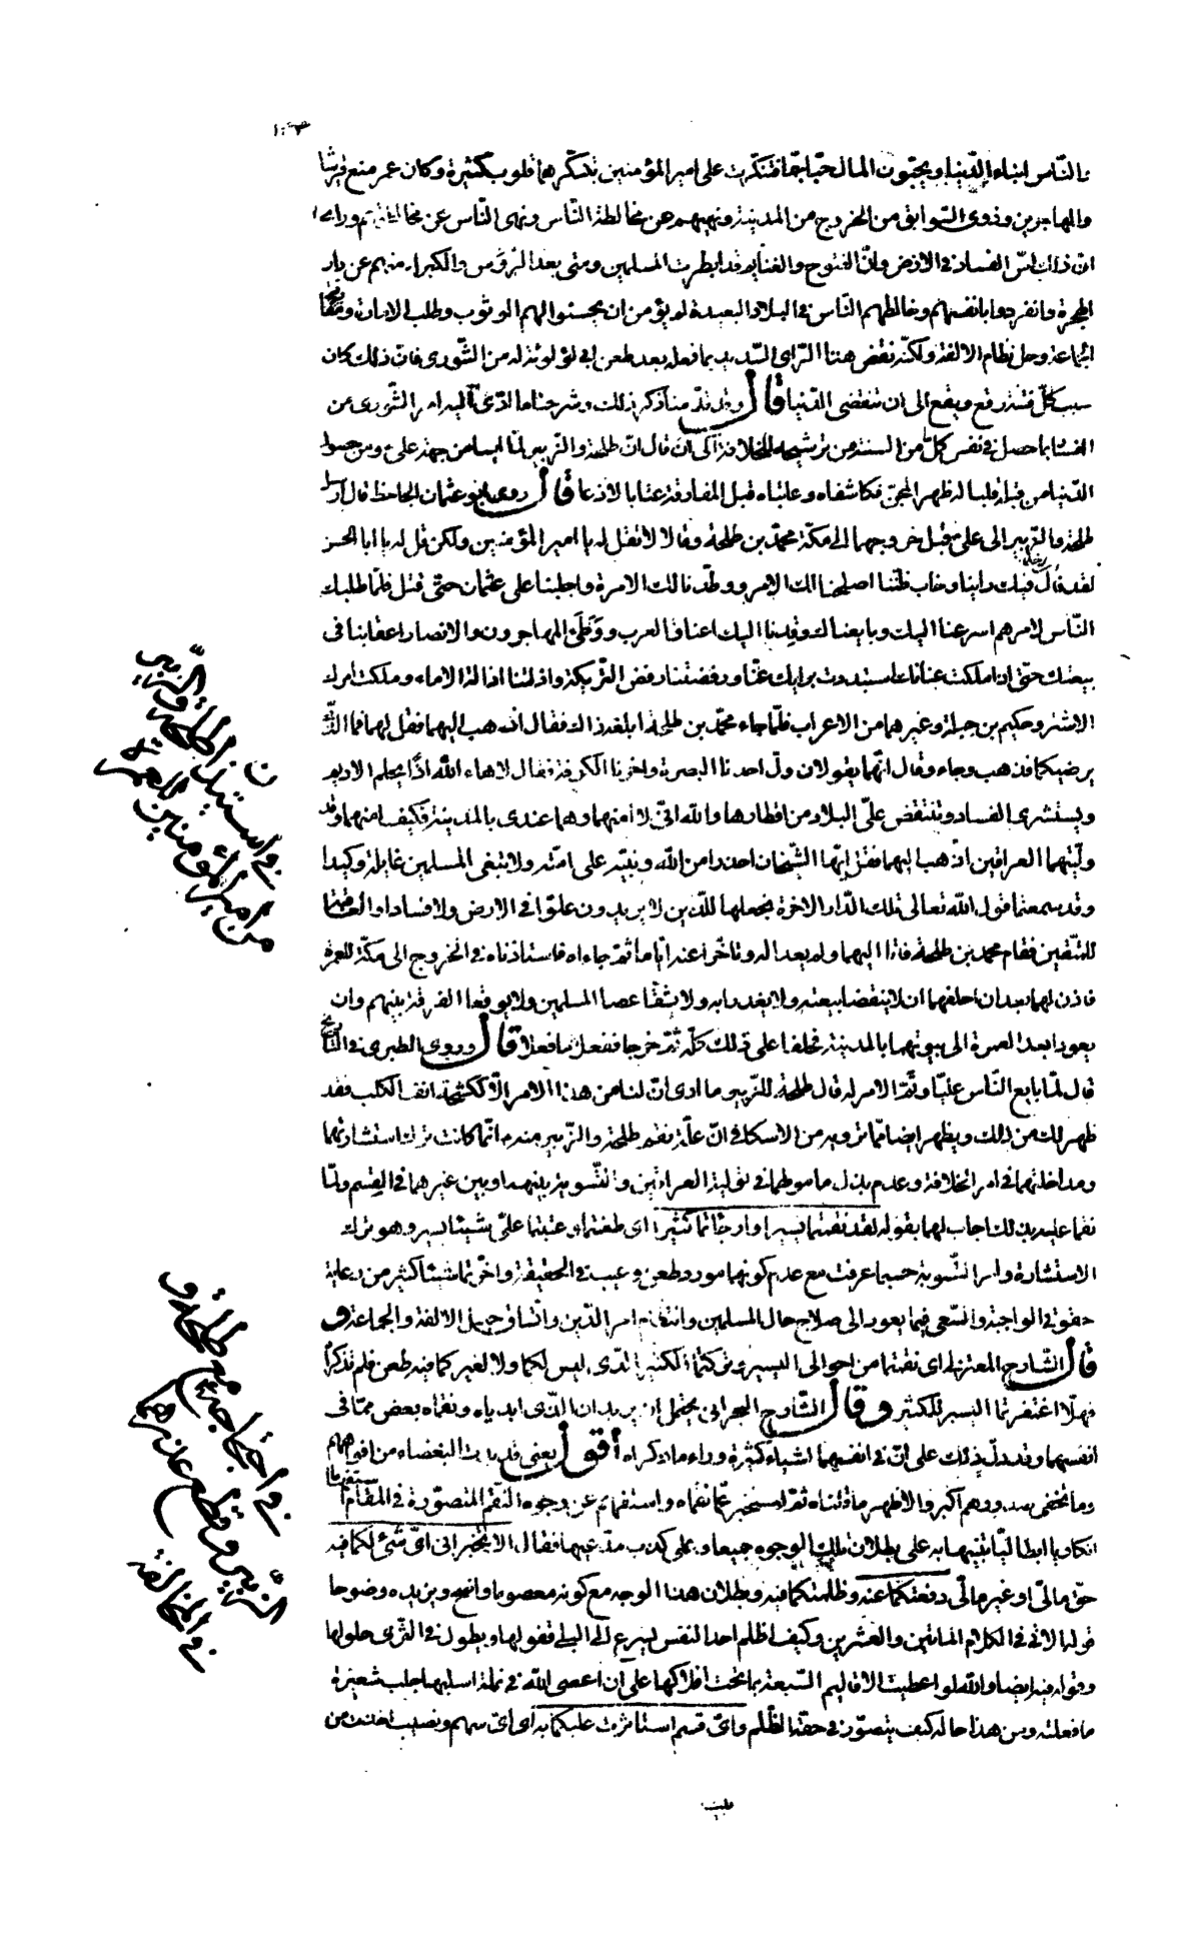 والنّاس ابناء الدّنيا ويحبّون المال حبّا جمّا فتنكّرت على امير المؤمنين بتنكّرهما قلوب كثيرة وكان عمر منع قريشا
والمهاجرين وذوى السّوابق من الخروج من المدينة ونهيهم عن مخالطة النّاس ونهى النّاس عن مخالطتهم وراى
انّ ذلك اسّ الفساد فى الارض وانّ الفتوح والغنايم قد ابطرت المسلمين ومتى بعد الرّؤس والكبراء منهم عن دار
الهجرة وانفردوا بانفسهم وخالطهم النّاس فى البلاد البعيدة لم يؤمن ان يحسنوا لهم الوثوب وطلب الامارة ومفارقة
الجماعة وحل نظام الالفة ولكنّه نقض هذا الرّاى السّديد بما فعله بعد طعن ابى لؤلؤة له من الشّورى فانّ ذلك كان
سبب كلّ فتنة وقع ويقع الى ان تنقضى الدّنيا قال وقد قدّمنا ذكر ذلك وشرحنا ما ادّى اليه امر الشّورى من
الفساد بما حصل فى نفس كلّ من السّتة من ترشيحه للخلافة الى ان قال انّ طلحة والزّبير لمّا ايسا من جهة علىّ ومن حصول
الدّنيا من قبله قلبا له ظهر المجنّ فكاشفاه وعاتباه قبل المفارقة عتابا لاذعا قال روى ابو عثمان الجاحظ قال ارسل
طلحة والزّبير الى علىّ قبل خروجهما الى مكّة محمّد بن طلحة وقالا لا تقل له يا امير المؤمنين ولكن قل له يا ابا الحسن
لقد قال فيك راينا وخاب ظنّنا اصلحنا لك الامر ووطّدنا لك الامرة واجلبنا على عثمان حتّى قتل فلمّا طلبك
النّاس لامرهم اسرعنا اليك وبايعناك وقدنا اليك اعناق العرب ووطىء المهاجرون والانصار اعقابنا فى
بيعتك حتّى اذا ملكت عنانك استبددت برايك عنّا ورفضتنا رفض التّريكة واذلتنا اذالة الاماء وملكت امرك
الاشتر وحكيم بن جبلة وغيرهما من الاعراب فلمّا جاء محمّد بن طلحة ابلغه ذاك فقال اذهب اليهما فقل لهما فما الّذى
يرضيكما فذهب وجاء وقال انّهما يقولان ولّ احدنا البصرة واخرنا الكوفة فقال لاهاء اللّه اذًا يحلم الاديم
ويستشرى الفساد وتنتقض علىّ البلاد من اقطارها واللّه انّى لا آمنهما وهما عندى بالمدينة فكيف آمنهما وقد
ولّيتهما العراقين اذهب اليهما فقل ايّها الشّيخان احذرا من اللّه ونبيّه على امّته ولا تبغى المسلمين غايلة وكيدا
وقد سمعتما قول اللّه تعالى تلك الدّار الآخرة نجعلها للّذين لا يريدون علوّا فى الارض ولا فسادا والعاقبة
للمتّقين فقام محمد بن طلحة فاتا اليهما ولم يعد اليه وتاخّرا عنه ايّاما ثمّ جاءاه فاستاذناه فى الخروج الى مكّة للعمرة
فاذن لهما بعد ان احلفهما ان لا ينقضا بيعته ولا يغدرا به ولا يشقّا عصا المسلمين ولا يوقعا الفرقة بينهم وان
يعودا بعد العمرة الى بيوتهما بالمدينة فحلفا على ذلك كلّه ثمّ خرجا ففعلا ما فعلا قال وروى الطبرى فى التّاريخ
قال لمّا بايع النّاس عليّا وتمّ الامر له قال طلحة للزّبير ما ارى انّ لنا من هذا الامر الّا كحسّة انف الكلب فقد
ظهر لك من ذلك ويظهر ايضا ممّا نرويه من الاسكافى انّ عمدة نقم طلحة والزّبير منه انّما كانت ترك استشارتهما
ومداخلتهما فى امر الخلافة وعدم بذل مامولهما فى تولية العراقين والتّسوية بينهما وبين غيرهما فى القسم ولمّا
نقما عليه بذلك اجاب لهما بقوله لقد نقمتما يسيرا وارجاتما كثيرا اى طعنتما وعتبتما علىّ بشيء يسير وهو ترك
الاستشارة وامر التّسوية حسبما عرفت مع عدم كونهما مورد طعن وعيب فى الحقيقة واخّرتما شيئا كثيرا من رعاية
حقوقى الواجبة والسّعى فيما يعود الى صلاح حال المسلمين وانتظام امر الدّين واتّساق حبل الالفة والجماعة و
قال الشّارح المعتزلى اى نقمتما من احوالى اليسير وتركتما الكثير الّذى ليس لكما ولا لغيركما فيه طعن فلم تذكراه
فهلّا اغتفرتما اليسير للكثير وقال الشّارح البحرانى يحتمل ان يريد ان الّذى ابدياه ونقماه بعض ممّا فى
انفسهما وقد دلّ ذلك على انّ فى انفسهما اشياء كثيرة وراء ما ذكراه اقول يعنى قد بدت البغضاء من افواههما
وما تخفى صدورهم اكبر والاظهر ما قلناه ثمّ استخبر عمّا نقماه واستفهام عن وجوه النّقم المتصوّرة فى المقام استفهاما
انكاريا ابطاليّا تنبيها به على بطلان تلك الوجوه جميعا وعلى كذب مدّعيها فقال الا تخبرانى اىّ شىء لكما فيه
حقّ مالىّ او غير مالىّ دفعتكما عنه وظلمتكما فيه وبطلان هذا الوجه مع كونه معصوما واضح ويزيده وضوحا
قوله الآتى فى الكلام المأتين والعشرين وكيف اظلم احدا لنفس يسرع الى البلى قفولها ويطول فى الثّرى حلولها
وقوله فيه ايضا واللّه لو اعطيت الاقاليم السّبعة بما تحت افلاكها على ان اعصى اللّه فى نملة اسلبها جلب شعيرة
ما فعلته ومن هذا حاله كيف يتصوّر فى حقّه الظّلم واىّ قسم استاثرت عليكما به اى اىّ سهم ونصيب اخذت من
فى استيذان طلحة والزّبير
من امير المؤمنين للعمرة
فى احتجاجه مع طلحة و
الزبير وقطع عذرهما
فى المخالفة